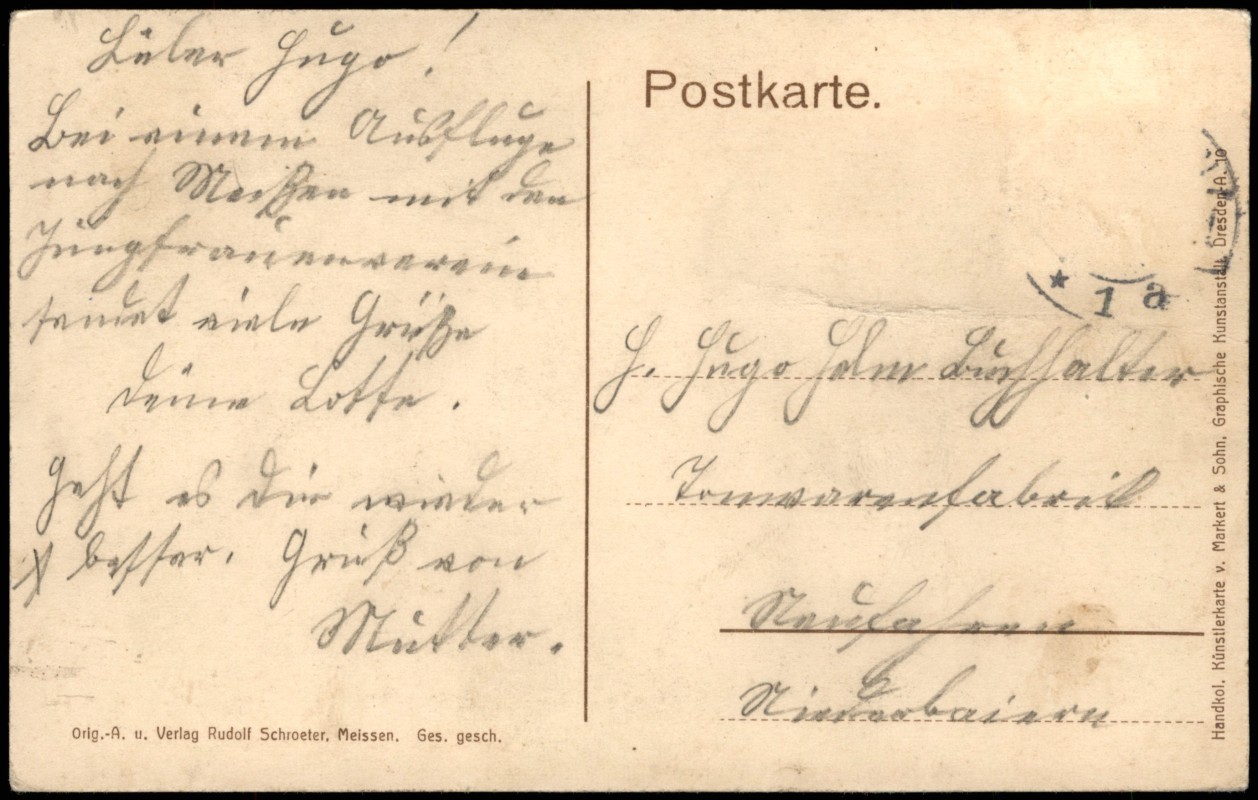 Lieber Hugo!
Bei einem Ausfluge
nach Meißen mit den
Jungfrauenverein
sendet viele Grüße
deine Lotte.
Geht es Dir wieder
besser. Gruß von
Mutter.
Orig.-A. u. Verlag Rudolf Schroeter, Meissen. Ges. gesch.
Postkarte.
* 1 a
H. Hugo Helm Buchhalter
Tonwarenfabrik
Neufahren
Niederbaiern
Handkol. Künstlerkarte v. Markert & Sohn, Graphische Kunstanstalt, Dresden-A. 10